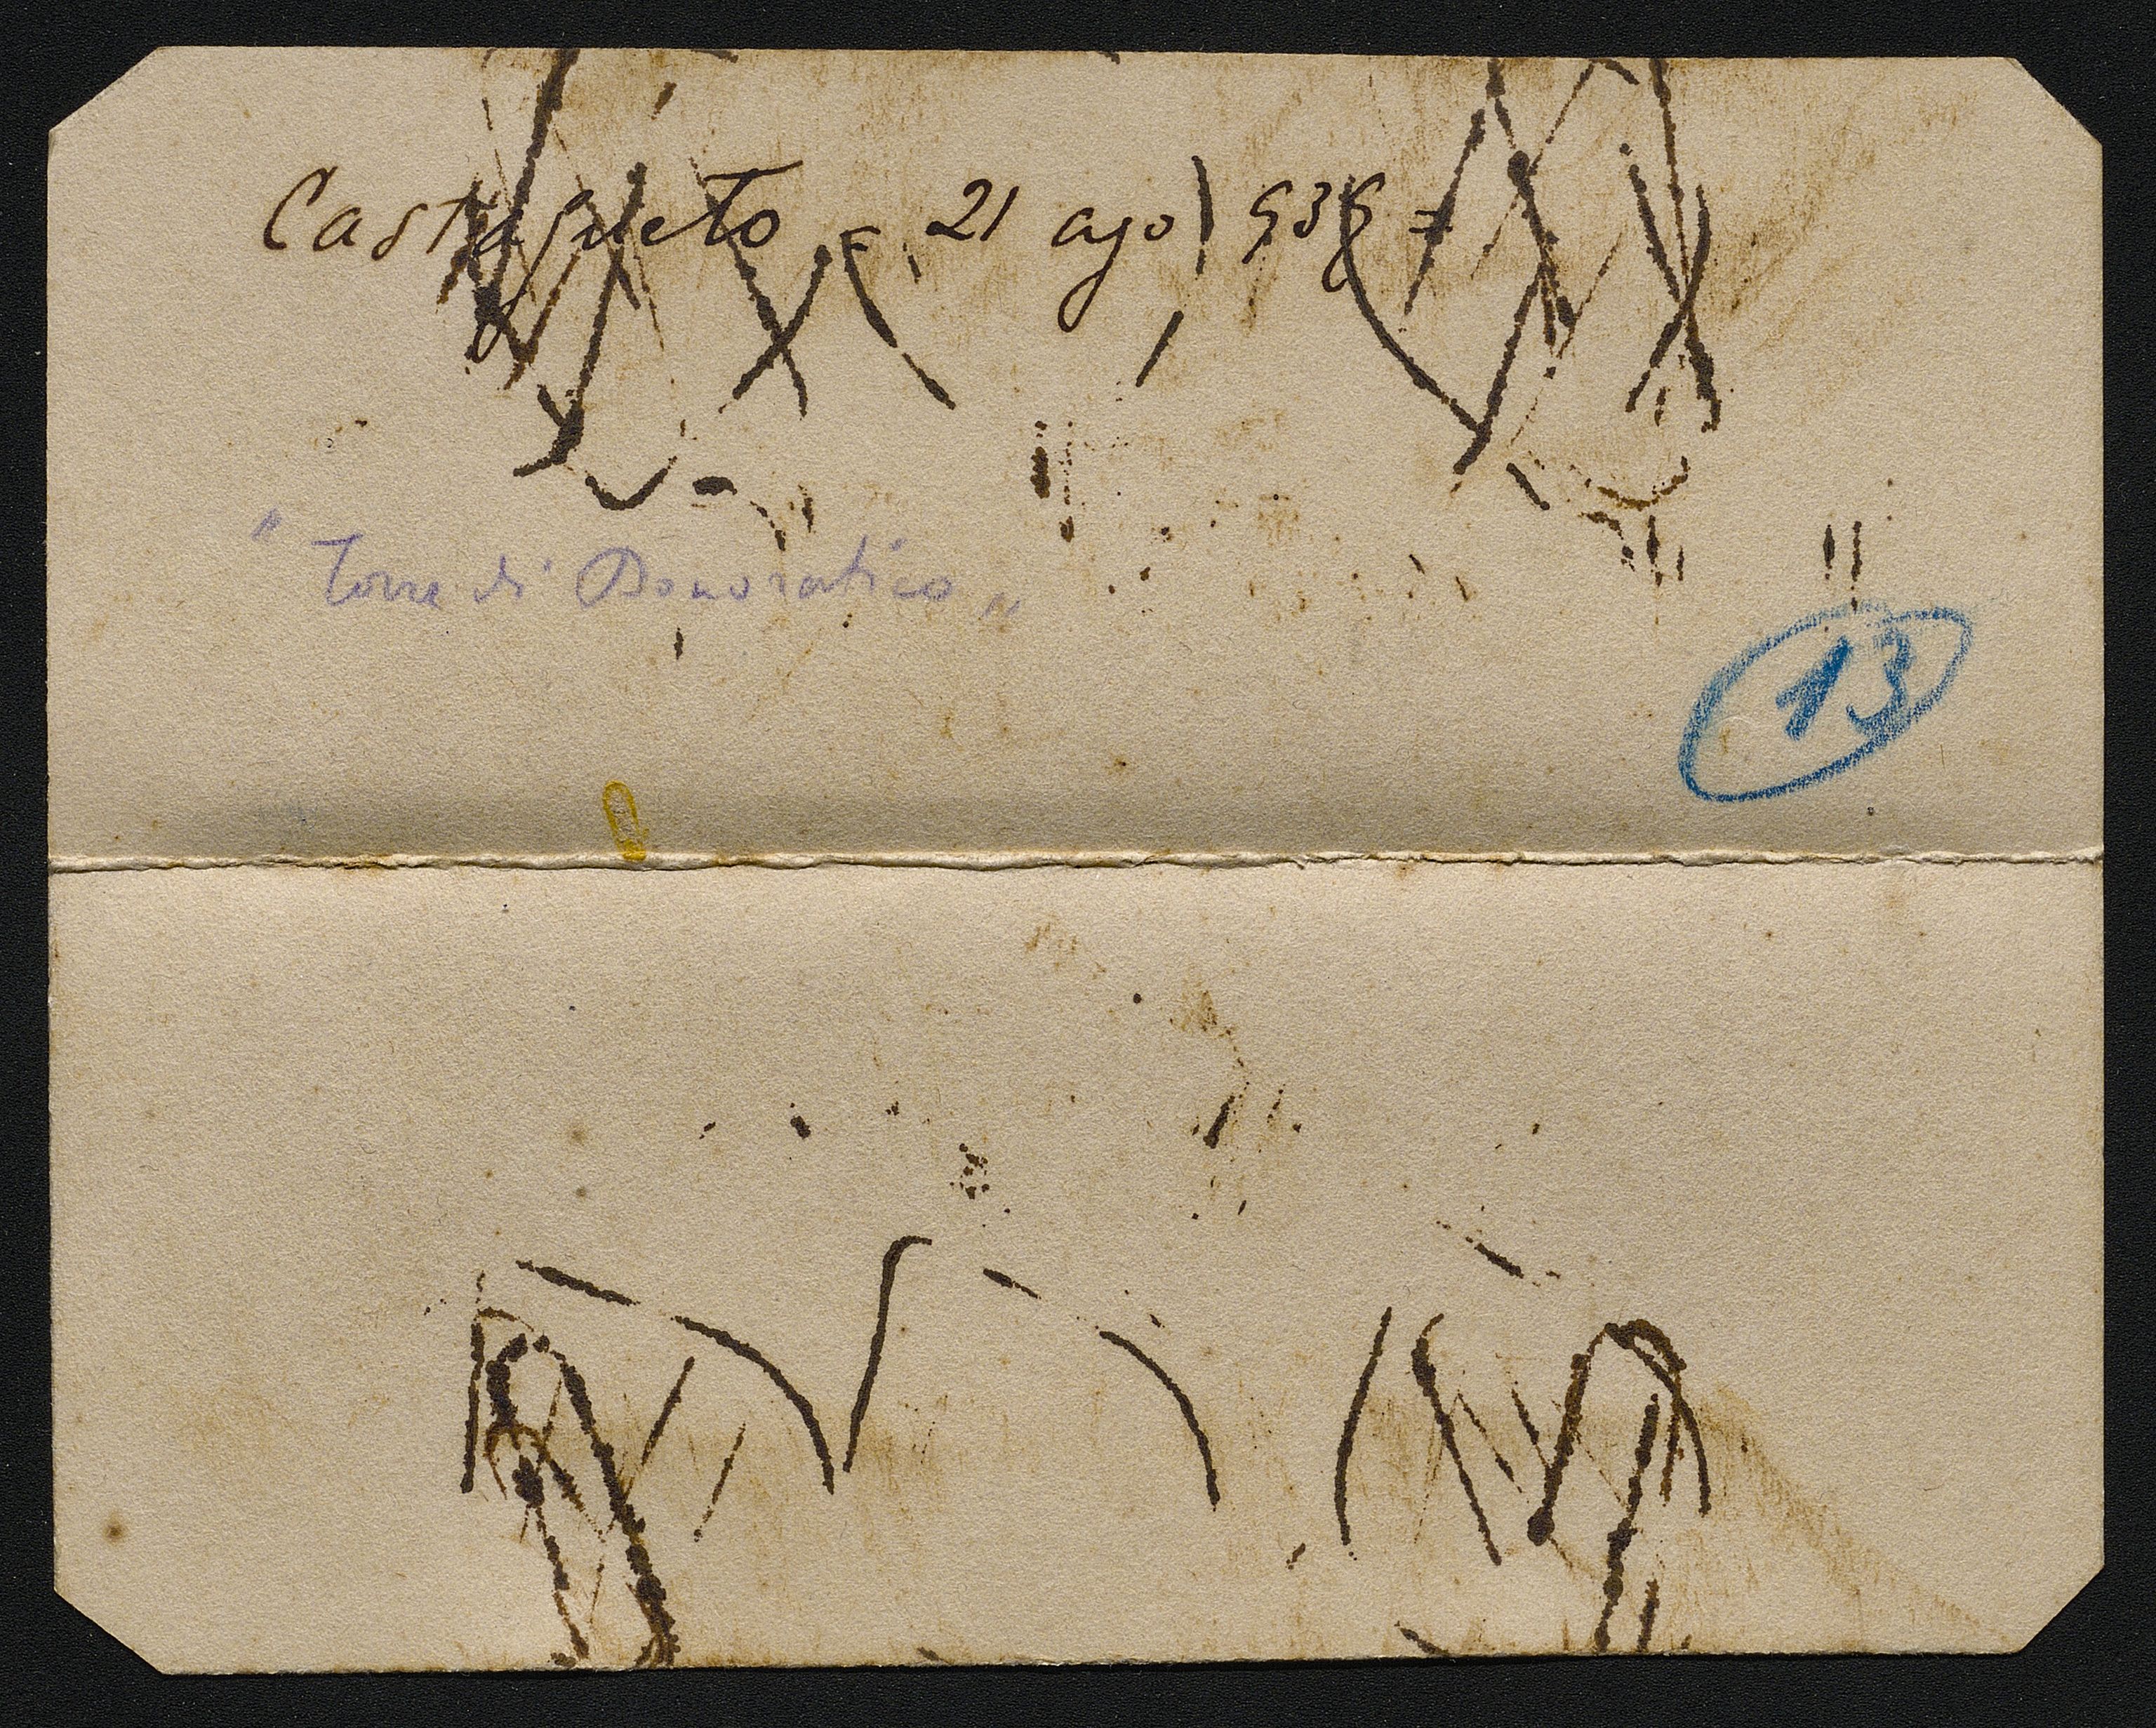 Castagneto = 21 ago) 938 =
" Torre di Donoratico „
13